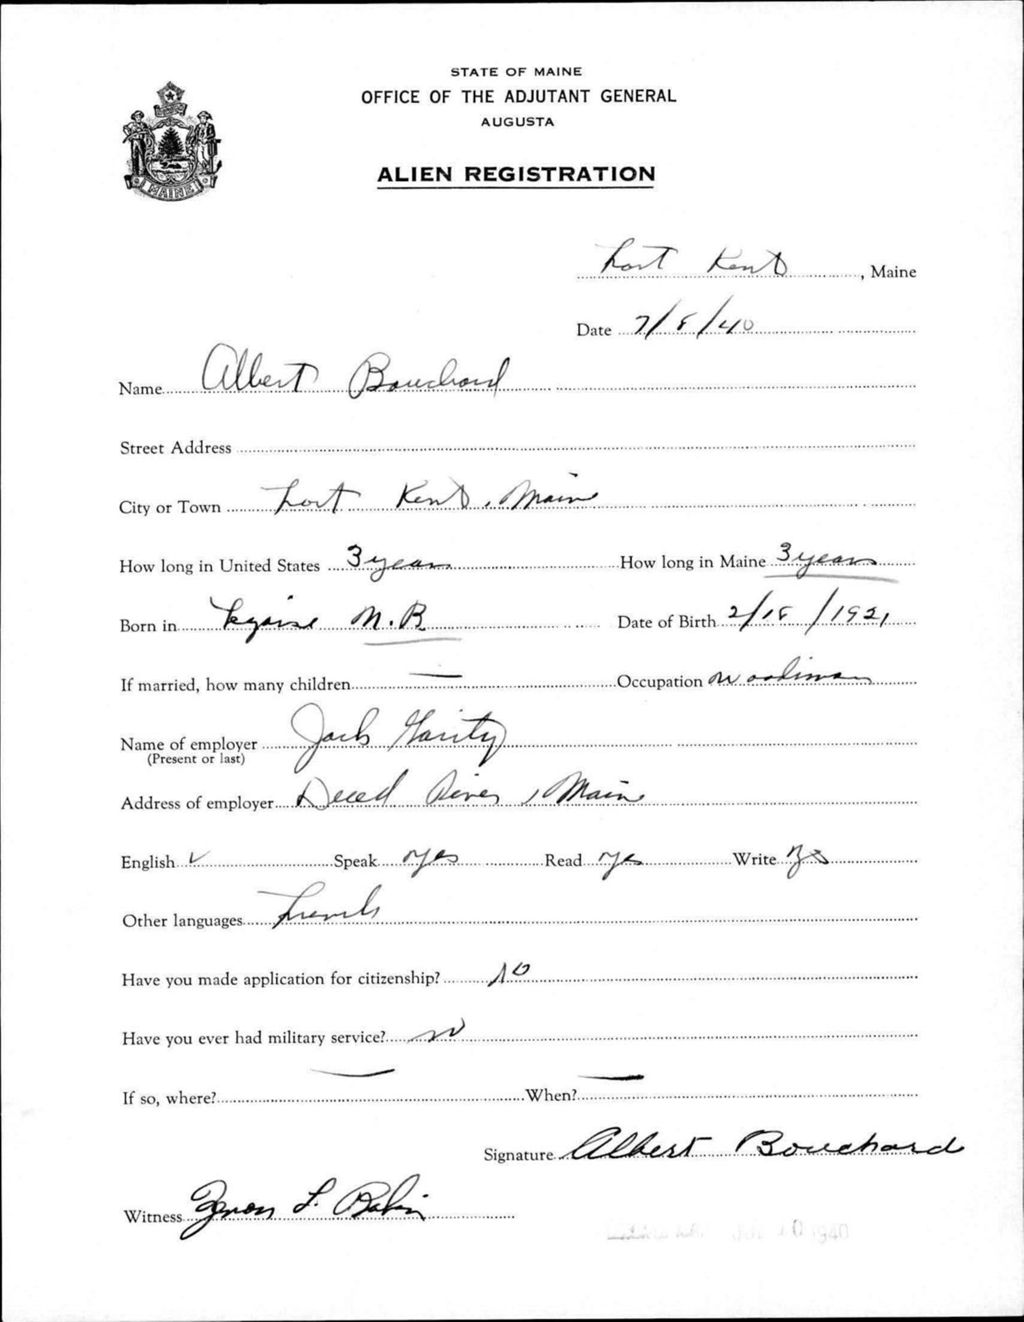 STATE OF MAINE
OFFICE OF THE ADJUTANT GENERAL
AUGUSTA
ALIEN REGISTRATION
MAINE
Fort Kent, Maine
Date 7/8/40
Name Albert Bouchard
Street Address
City or Town Fort Kent, Maine
How long in United States 3 years How long in Maine 3 years
Born in N.B. Date of Birth 2/18/1921
If married, how many children — Occupation Woodsman
Name of employer Jack Garity
(Present or last)
Address of employer River, Maine
English ✓ Speak yes Read yes Write yes
Other languages French
Have you made application for citizenship? no
Have you ever had military service? no
If so, where? — When? —
Signature Albert Bouchard
Witness L. Babin
10 1940